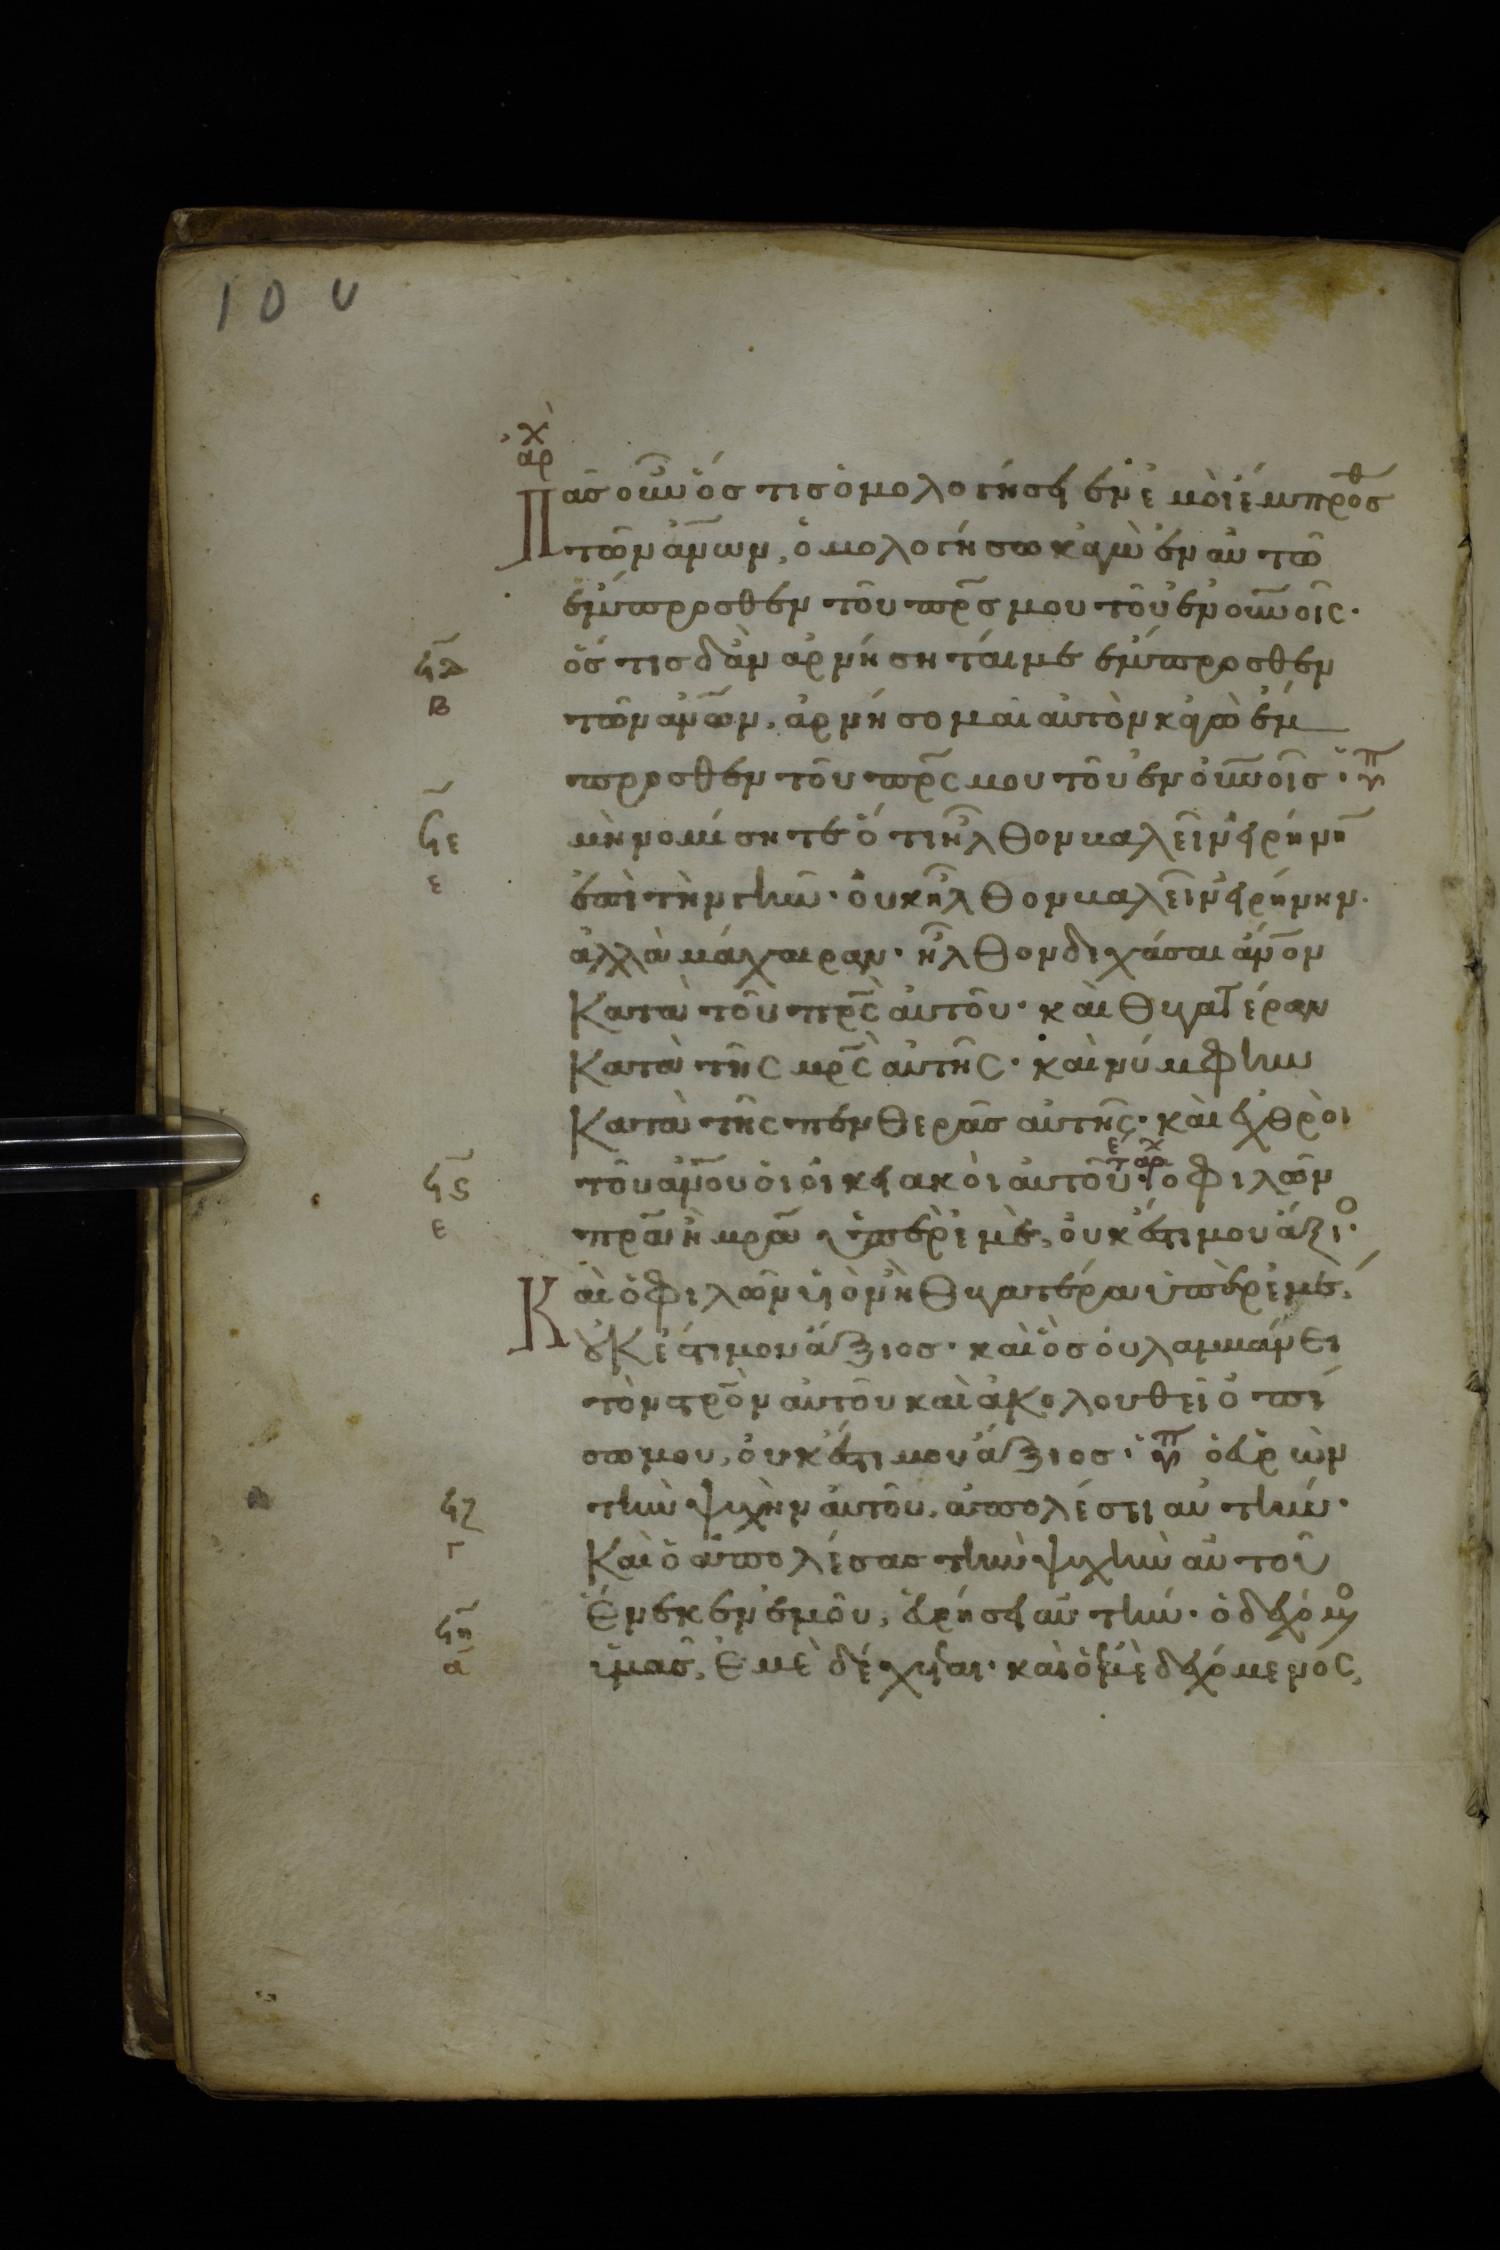 10 v
ἀρχ
Πᾶσ οὖν ὅσ τισ ὁμολογήσει ἐν ἐμοὶ ἔμπροσθ
τῶν ἀν̅ων, ὁμολογήσω κἀγὼ ἐν αὐτῶ
ἔμπροσθεν τοῦ πρ̅σ μου τοῦ ἐν οὐν̅οῖς·
ϟδ ὅσ τισ δ ἂν ἀρνήσηταί με ἔμπροσθεν
β τῶν ἀν̅ων, ἀρνήσομαι αὐτὸν κἀγὼ ἔμ
προσθεν τοῦ πρ̅ς μου τοῦ ἐν οὐν̅οῖσ· ὑπ
ϟε μὴ νομίσητε ὅτι ἦλθον βαλεῖν εἰρήνη̅
ε ἐπὶ τὴν γῆν· οὐκ ἦλθον βαλεῖν εἰρήνην·
ἀλλὰ μάχαιραν· ἦλθον διχάσαι ἄν̅ον
Κατὰ τοῦ πρ̅ς αὐτοῦ· καὶ θυγατέραν
Κατὰ τῆς μρ̅ς αὐτῆς· καὶ νύμφην
Κατὰ τῆς πενθερᾶσ αὐτῆς· καὶ ἐχθροὶ
ϟς τοῦ ἀν̅ου οἱ οἰκειακοὶ αὐτοῦ· τε ἀρχ ὁ φιλῶν
ε πρ̅α ἢ μρ̅α ὑπὲρ ἐμὲ, οὐκ ἔστι μου ἄξιο·
Καὶ ὁ φιλῶν υἱὸν ἢ θυγατέρα ὑπὲρ ἐμὲ,
οὐκ ἔστι μου ἄξιος· καὶ ὃσ οὐ λαμβάνει
τὸν στρ̅ὸν αὐτοῦ καὶ ἀκολουθεῖ ὀπί
σω μου, οὐκ ἔστι μου ἄξιοσ· ὑπ ὁ εὑρὼν
ϟζ τὴν ψυχὴν αὐτοῦ, ἀπολέσει αὐτήν·
γ Καὶ ὁ ἀπολέσασ τὴν ψυχὴν αὐτοῦ
Ἕνεκεν ἐμοῦ, εὑρήσει αὐτήν· ὁ δεχόμο
ϟη ὑμᾶσ, Ἐμὲ δέχεται· καὶ ὁ ἐμὲ δεχόμενος,
α